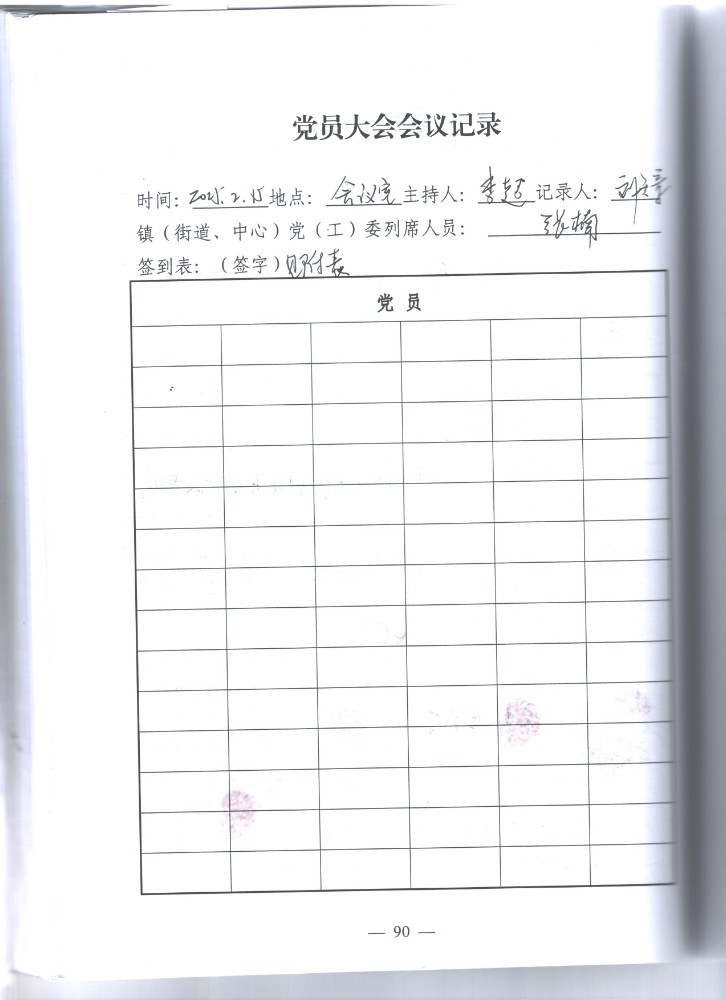 党员大会会议记录
时间：2025.2.15地点：会议室主持人：李超记录人：
镇（街道、中心）党（工）委列席人员：张楠
签到表：（签字）见附表
党 员
— 90 —